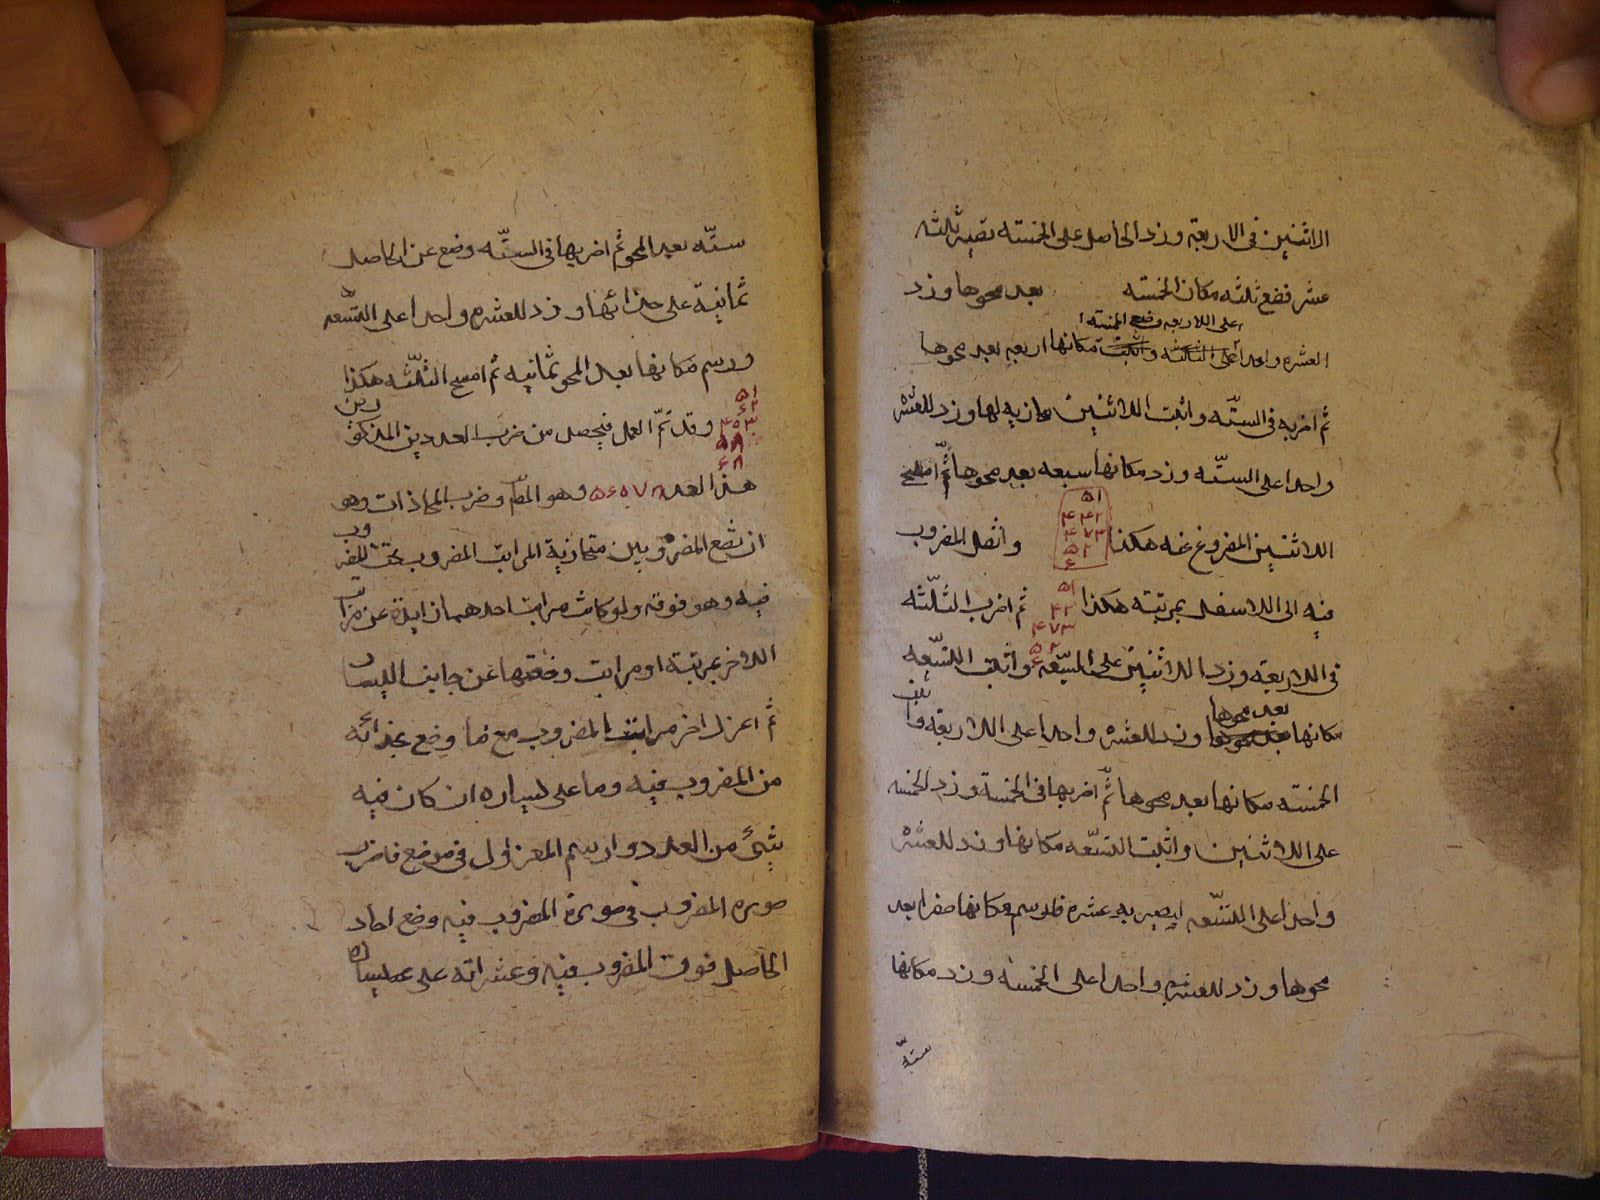 الاثنين فى الاربعة وزد الحاصل على الخمسته يصير ثلثه
عشر فضع ثلثه مكان الخمسته بعد محوها وزد
على الاربعه وضع الخمسته
العشره واحدا على الثلثه واثبت مكانها اربعه بعد محوها
ثم اضربه فى الستّه واثبت الاثنين محاذيه لها وزد للعشره
واحدا على الستّه وزد مكانها سبعه بعد محوها ثمّ امسح
الاثنين المفروغ عنه هكذا وانقل المضروب
۵۱
۴۴۲
۴۷۳
۵۲
۶
فيه الى الاسفل بمرتبته هكذا ثم اضرب الثلّثه
۵۱
۴۲
۴۷۳
۵۲
۶
فى الاربعة وزد الاثنين على السبّعه واثبت التسّعه
بعد محوها
مكانها وزد للعشره واحدا على الاربعة واثبت
الخمسته مكانها بعد محوها ثمّ اضربها فى الخمسة وزد الخمسه
على الاثنين واثبت السبّعه مكانها وزد للعشره
واحدا على التسّعه ليصير به عشره فارسم مكانها صفرا بعد
محوها وزد للعشره واحدا على الخمسه وزد مكانها
ستّه
ستّه بعد المحو ثم اضربها فى الستّه وضع عن الحاصل
ثمانية على حذائها وزد للعشره واحدا على السبّعه
ورسم مكانها بعد المحو ثمانيه ثم امسح الثلّثه هكذا
۵۱
۶۲
۴۵۳
۵۸
۶۸
وقد تمّ العمل فيحصل من ضرب العددين المذكورين
هذا العدد ۵۶۵۷۸ وهو المطّ وضرب المحاذات وهو
ان تضع المضروبين متحاذية المراتب المضروب تحت المضروب
فيه وهو فوقه ولو كانت مراتب احدهما زايدة عن مراتب
الاخر بمرتبة او مراتب وضعتها عن جانب اليسار
ثم اعزل اخر مراتب المضروب مع ما وضع بحذائه
من المضروب فيه وما على يساره ان كان فيه
شئ من العدد وارسم المعزول فى موضع فاضرب
صوره المضروب فى صورة المضروب فيه وضع احاد
الحاصل فوق المضروب فيه وعشراته على يساره